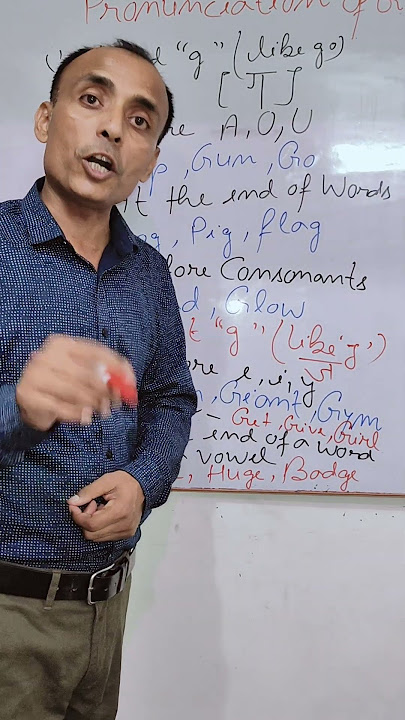 Pronunciation of
"g" (like go)
[ग]
A, O, U
Gum, Go
t the end of Words
Pig, flag
fore Consonants
d, Glow
t "g" (like 'j')
ज
ore e, i, y
Geant, Gym
– Get, Give, Girl
end of a word
vowel
, Huge, Badge